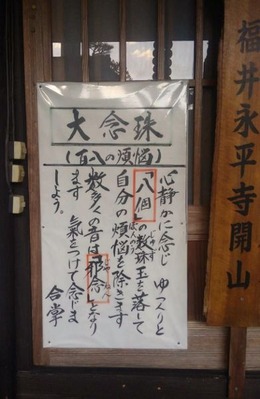 福井永平寺開山
大念珠
(百八の煩悩)
心静かに念じ ゆっくりと
「八個」の数珠玉を落して
自分の煩悩を除きます
数多くの音は「邪念」となり
ます 氣をつけて念じま
しょう。 合掌